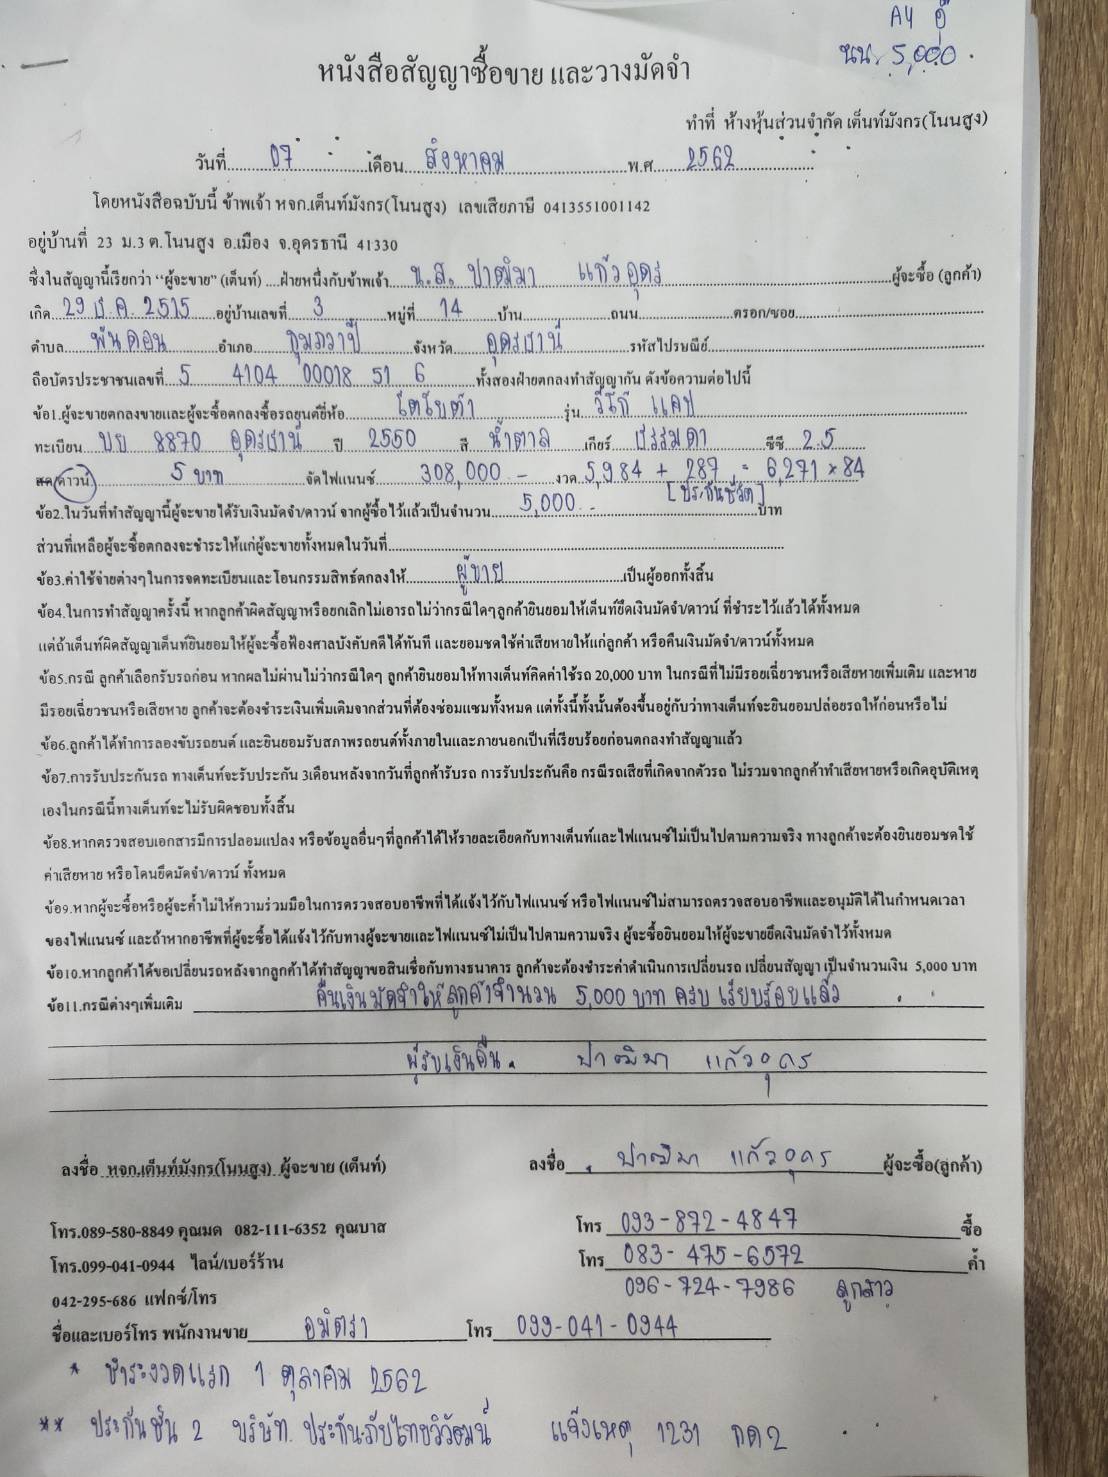 A4 อู๊
นน. 5,000.
หนังสือสัญญาซื้อขาย และวางมัดจำ
ทำที่ ห้างหุ้นส่วนจำกัด เต็นท์มังกร(โนนสูง)
วันที่ 07 เดือน สิงหาคม พ.ศ. 2562
โดยหนังสือฉบับนี้ ข้าพเจ้า หจก.เต็นท์มังกร(โนนสูง) เลขเสียภาษี 0413551001142
อยู่บ้านที่ 23 ม.3 ต.โนนสูง อ.เมือง จ.อุดรธานี 41330
ซึ่งในสัญญานี้เรียกว่า "ผู้จะขาย" (เต็นท์) ....ฝ่ายหนึ่งกับข้าพเจ้า น.ส. ปาฒิมา แก้วอุดร ผู้จะซื้อ (ลูกค้า)
เกิด 29 ธ.ค. 2515 อยู่บ้านเลขที่ 3 หมู่ที่ 14 บ้าน ถนน ตรอก/ซอย
ตำบล พันดอน อำเภอ กุมภวาปี จังหวัด อุดรธานี รหัสไปรษณีย์
ถือบัตรประชาชนเลขที่ 5 4104 00018 51 6 ทั้งสองฝ่ายตกลงทำสัญญากัน ดังข้อความต่อไปนี้
ข้อ1.ผู้จะขายตกลงขายและผู้จะซื้อตกลงซื้อรถยนต์ยี่ห้อ โตโยต้า รุ่น วีโก้ แคป
ทะเบียน บย 8870 อุดรธานี ปี 2550 สี น้ำตาล เกียร์ ธรรมดา ซีซี 2.5
สด/ดาวน์ 5 บาท จัดไฟแนนซ์ 308,000 - งวด 5,984 + 287 = 6,271 × 84
[ประกันชีวิต]
ข้อ2.ในวันที่ทำสัญญานี้ผู้จะขายได้รับเงินมัดจำ/ดาวน์ จากผู้ซื้อไว้แล้วเป็นจำนวน 5,000 - บาท
ส่วนที่เหลือผู้จะซื้อตกลงจะชำระให้แก่ผู้จะขายทั้งหมดในวันที่
ข้อ3.ค่าใช้จ่ายต่างๆในการจดทะเบียนและโอนกรรมสิทธ์ตกลงให้ ผู้ขาย เป็นผู้ออกทั้งสิ้น
ข้อ4.ในการทำสัญญาครั้งนี้ หากลูกค้าผิดสัญญาหรือยกเลิกไม่เอารถไม่ว่ากรณีใดๆลูกค้ายินยอมให้เต็นท์ยึดเงินมัดจำ/ดาวน์ ที่ชำระไว้แล้วได้ทั้งหมด
แต่ถ้าเต็นท์ผิดสัญญาเต็นท์ยินยอมให้ผู้จะซื้อฟ้องศาลบังคับคดีได้ทันที และยอมชดใช้ค่าเสียหายให้แก่ลูกค้า หรือคืนเงินมัดจำ/ดาวน์ทั้งหมด
ข้อ5.กรณี ลูกค้าเลือกรับรถก่อน หากผลไม่ผ่านไม่ว่ากรณีใดๆ ลูกค้ายินยอมให้ทางเต็นท์คิดค่าใช้รถ 20,000 บาท ในกรณีที่ไม่มีรอยเฉี่ยวชนหรือเสียหายเพิ่มเติม และหาย
มีรอยเฉี่ยวชนหรือเสียหาย ลูกค้าจะต้องชำระเงินเพิ่มเติมจากส่วนที่ต้องซ่อมแซมทั้งหมด แต่ทั้งนี้ทั้งนั้นต้องขึ้นอยู่กับว่าทางเต็นท์จะยินยอมปล่อยรถให้ก่อนหรือไม่
ข้อ6.ลูกค้าได้ทำการลองขับรถยนต์ และยินยอมรับสภาพรถยนต์ทั้งภายในและภายนอกเป็นที่เรียบร้อยก่อนตกลงทำสัญญาแล้ว
ข้อ7.การรับประกันรถ ทางเต็นท์จะรับประกัน 3เดือนหลังจากวันที่ลูกค้ารับรถ การรับประกันคือ กรณีรถเสียที่เกิดจากตัวรถ ไม่รวมจากลูกค้าทำเสียหายหรือเกิดอุบัติเหตุ
เองในกรณีนี้ทางเต็นท์จะไม่รับผิดชอบทั้งสิ้น
ข้อ8.หากตรวจสอบเอกสารมีการปลอมแปลง หรือข้อมูลอื่นๆที่ลูกค้าได้ให้รายละเอียดกับทางเต็นท์และไฟแนนซ์ไม่เป็นไปตามความจริง ทางลูกค้าจะต้องยินยอมชดใช้
ค่าเสียหาย หรือโดนยึดมัดจำ/ดาวน์ ทั้งหมด
ข้อ9.หากผู้จะซื้อหรือผู้จะค้ำไม่ให้ความร่วมมือในการตรวจสอบอาชีพที่ได้แจ้งไว้กับไฟแนนซ์ หรือไฟแนนซ์ไม่สามารถตรวจสอบอาชีพและอนุมัติได้ในกำหนดเวลา
ของไฟแนนซ์ และถ้าหากอาชีพที่ผู้จะซื้อได้แจ้งไว้กับทางผู้จะขายและไฟแนนซ์ไม่เป็นไปตามความจริง ผู้จะซื้อยินยอมให้ผู้จะขายยึดเงินมัดจำไว้ทั้งหมด
ข้อ10.หากลูกค้าได้ขอเปลี่ยนรถหลังจากลูกค้าได้ทำสัญญาขอสินเชื่อกับทางธนาคาร ลูกค้าจะต้องชำระค่าดำเนินการเปลี่ยนรถ เปลี่ยนสัญญา เป็นจำนวนเงิน 5,000 บาท
ข้อ11.กรณีต่างๆเพิ่มเติม คืนเงินมัดจำให้ลูกค้าจำนวน 5,000 บาท ครบ เรียบร้อยแล้ว
ผู้รับเงินคืน. ปาฒิมา แก้วอุดร
ลงชื่อ หจก.เต็นท์มังกร(โนนสูง) ผู้จะขาย (เต็นท์) ลงชื่อ ปาฒิมา แก้วอุดร ผู้จะซื้อ(ลูกค้า)
โทร.089-580-8849 คุณมด 082-111-6352 คุณบาส โทร 093-872-4847 ซื้อ
โทร.099-041-0944 ไลน์/เบอร์ร้าน โทร 083-475-6572 ค้ำ
042-295-686 แฟกซ์/โทร 096-724-7986 ลูกสาว
ชื่อและเบอร์โทร พนักงานขาย อมิตรา โทร 099-041-0944
* ชำระงวดแรก 1 ตุลาคม 2562
** ประกันชั้น 2 บริษัท. ประกันภัยไทยวิวัฒน์ แจ้งเหตุ 1231 กด 2